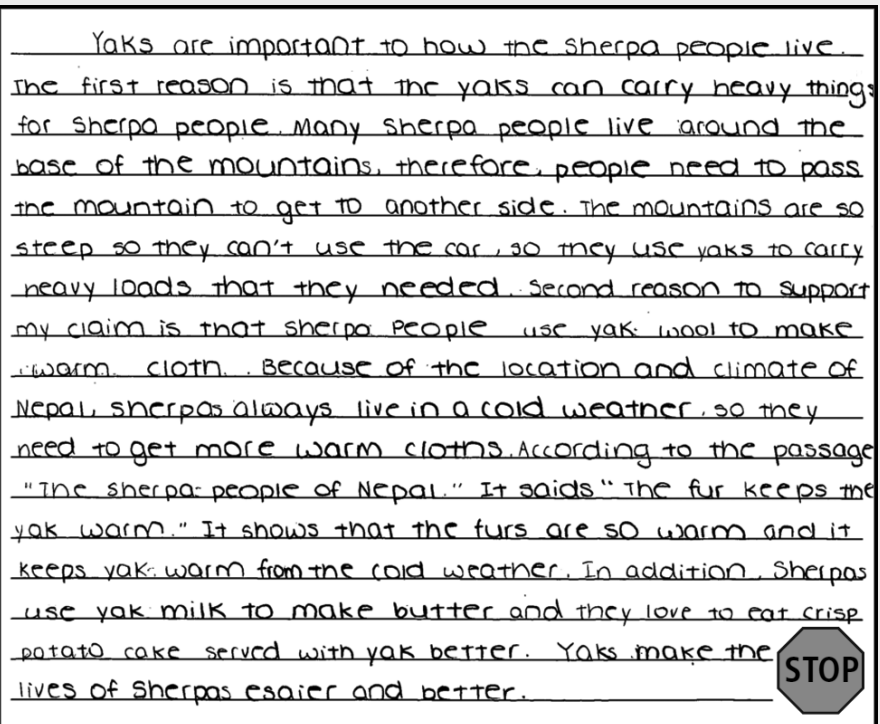 Yaks are important to how the Sherpa people live.
The first reason is that the yaks can carry heavy things
for Sherpa people. Many Sherpa people live around the
base of the mountains, therefore, people need to pass
the mountain to get to another side. The mountains are so
steep so they can't use the car, so they use yaks to carry
heavy loads that they needed. Second reason to support
my claim is that Sherpa People use yak wool to make
warm cloth. Because of the location and climate of
Nepal, sherpas always live in a cold weather, so they
need to get more warm cloths. According to the passage
"The Sherpa people of Nepal." It saids "The fur keeps the
yak warm." It shows that the furs are so warm and it
keeps yak warm from the cold weather. In addition, Sherpas
use yak milk to make butter and they love to eat crisp
potato cake served with yak better. Yaks make the
STOP
lives of Sherpas esaier and better.